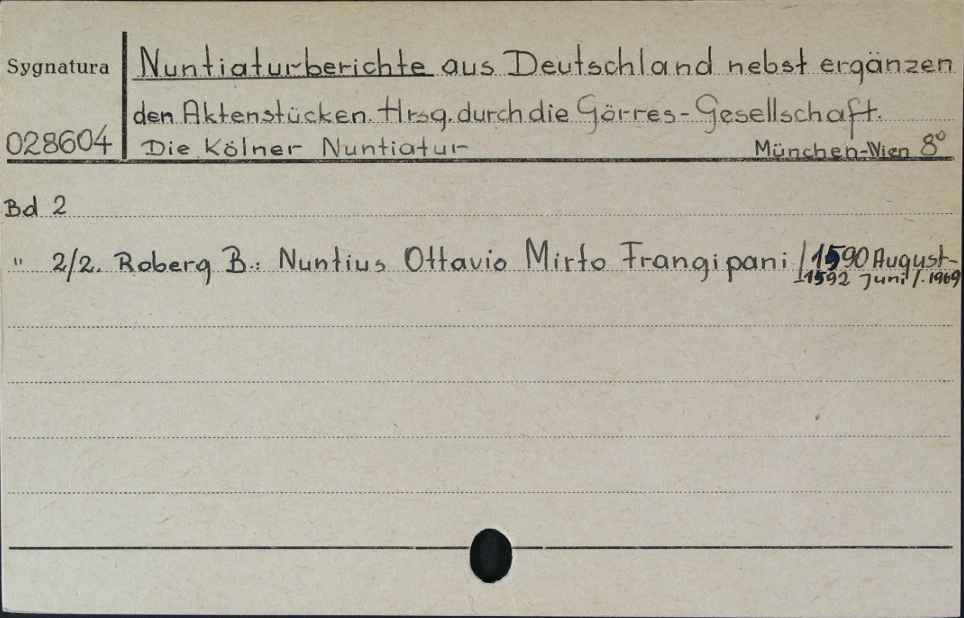 Sygnatura
Nuntiaturberichte aus Deutschland nebst ergänzen
den Aktenstücken. Hrsg. durch die Görres-Gesellschaft.
028604
Die Kölner Nuntiatur München-Wien 8°
Bd 2
" 2/2. Roberg B.: Nuntius Ottavio Mirto Frangipani /1590 August-
-1592 Juni/. 1969